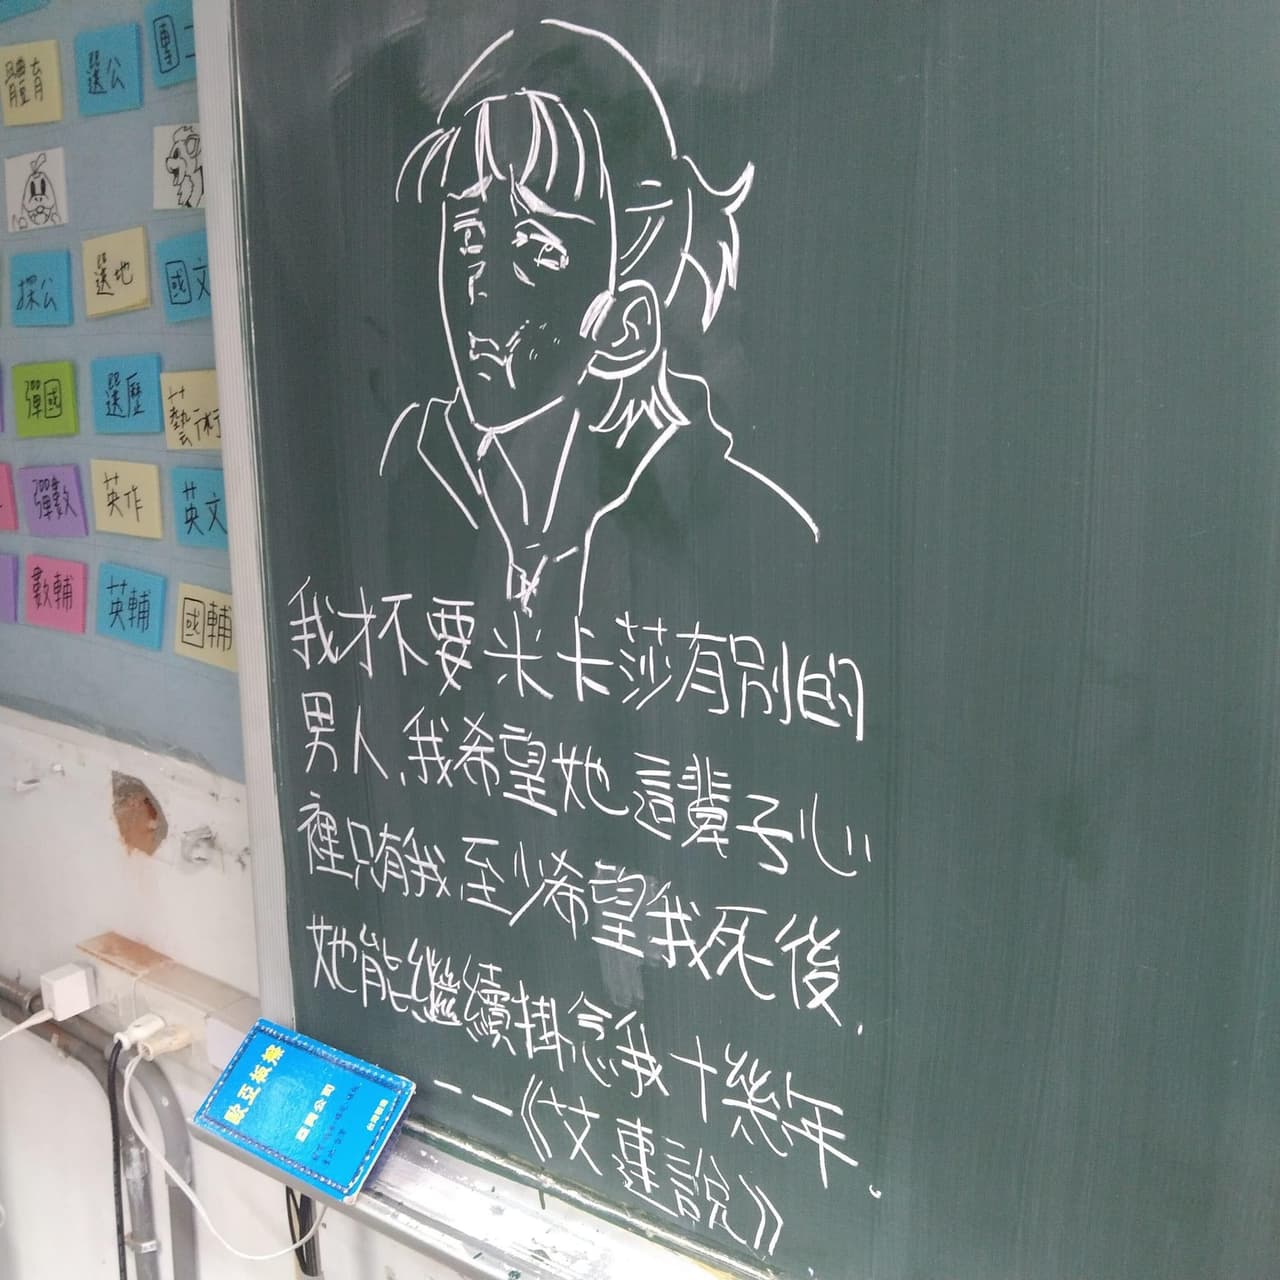 體育
選公
探公
選地
國文
彈國
選歷
藝術
彈數
英作
英文
數輔
英輔
國輔
我才不要米卡莎有別的
男人,我希望她這輩子心
裡只有我至少希望我死後,
她能繼續掛念我十幾年.
——《艾連說》
歐亞板擦